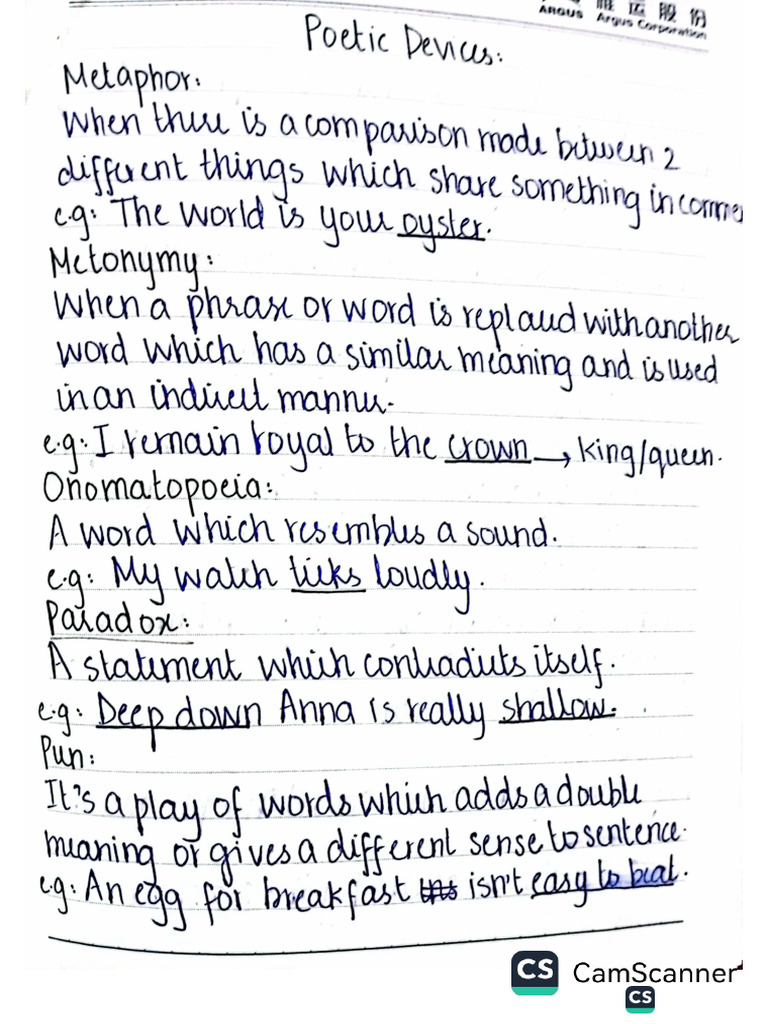 ARGUS Argus Corporation
Poetic Devices:
Metaphor:
When there is a comparison made between 2
different things which share something in common
e.g: The world is your oyster.
Metonymy:
When a phrase or word is replaced with another
word which has a similar meaning and is used
in an indirect manner.
e.g: I remain royal to the crown → king/queen.
Onomatopoeia:
A word which resembles a sound.
e.g: My watch ticks loudly.
Paradox:
A statement which contradicts itself.
e.g: Deep down Anna is really shallow.
Pun:
It's a play of words which adds a double
meaning or gives a different sense to sentence.
e.g: An egg for breakfast isn't easy to beat.
CS CamScanner
CS